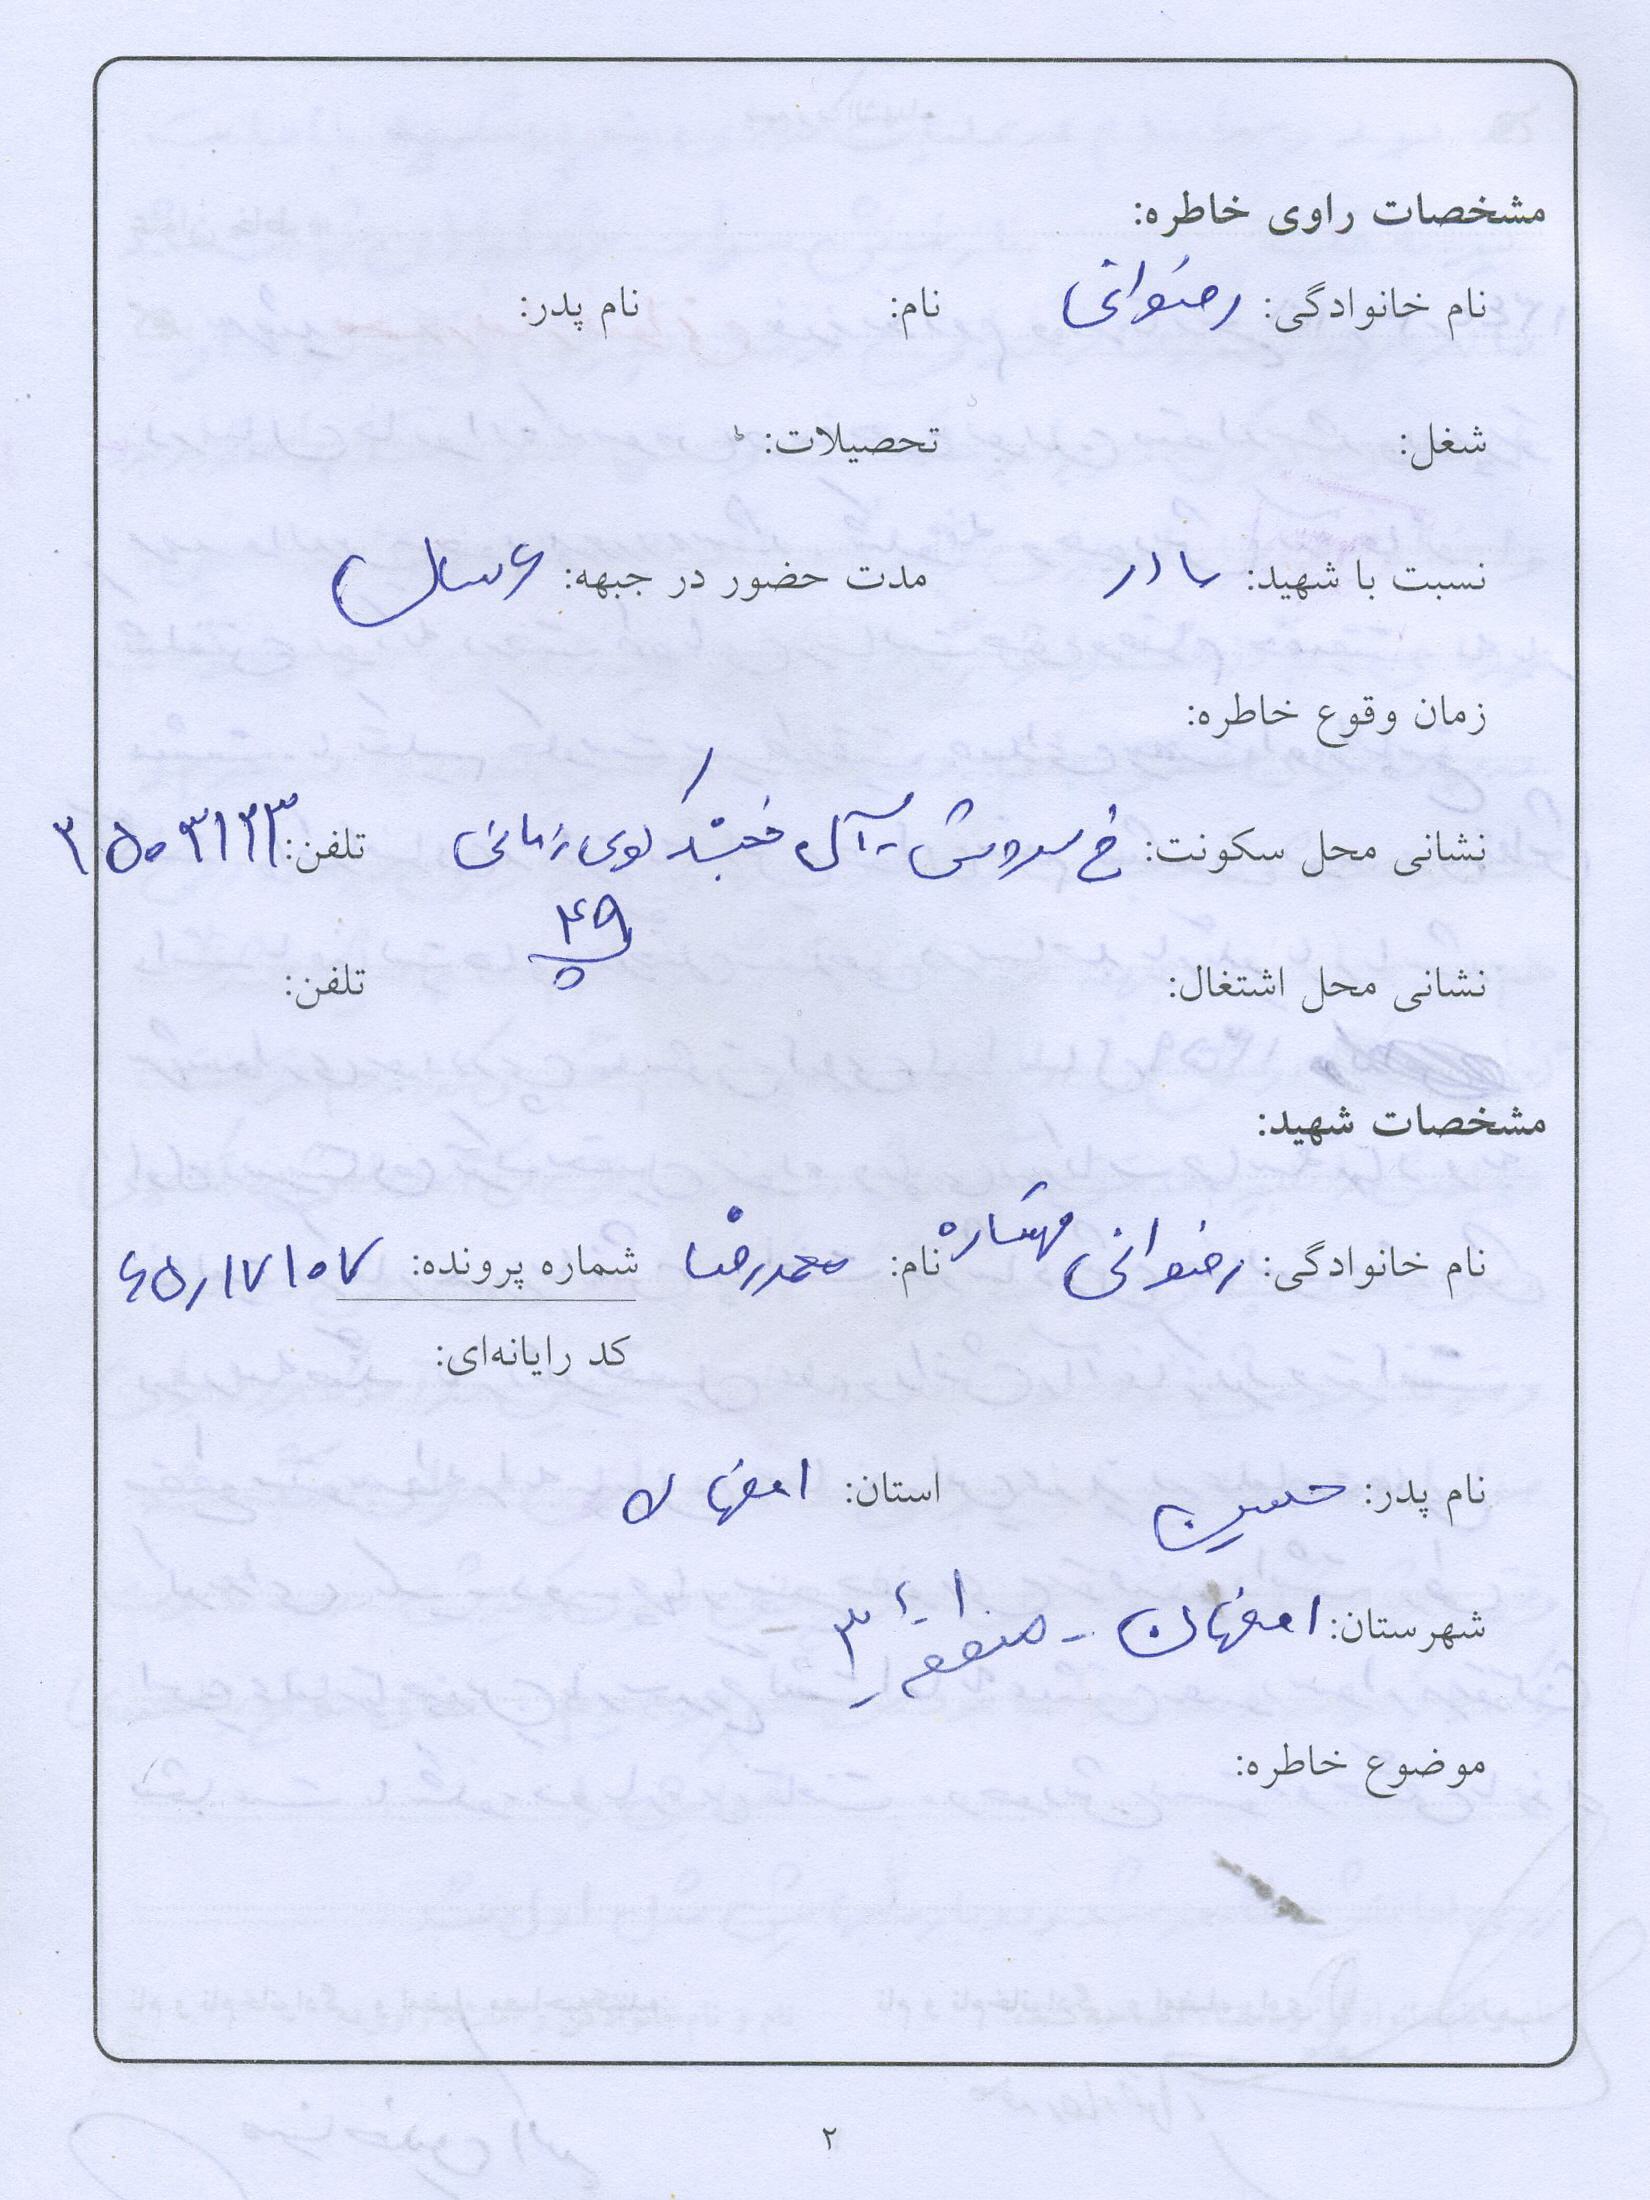 مشخصات راوی خاطره:
نام خانوادگی: رضوانی نام: نام پدر:
شغل: تحصیلات:
نسبت با شهید: مادر مدت حضور در جبهه: ۶ سال
زمان وقوع خاطره:
نشانی محل سکونت: خ سروش - آل خجند کوی زمانی تلفن:
۴۹
نشانی محل اشتغال: تلفن:
مشخصات شهید:
نام خانوادگی: رضوانی نام: محمدرضا شماره پرونده: ۶۵/۱۷۱۰۷
کد رایانه‌ای:
نام پدر: حسین استان: اصفهان
شهرستان: اصفهان - منطقه ۳
موضوع خاطره:
۲